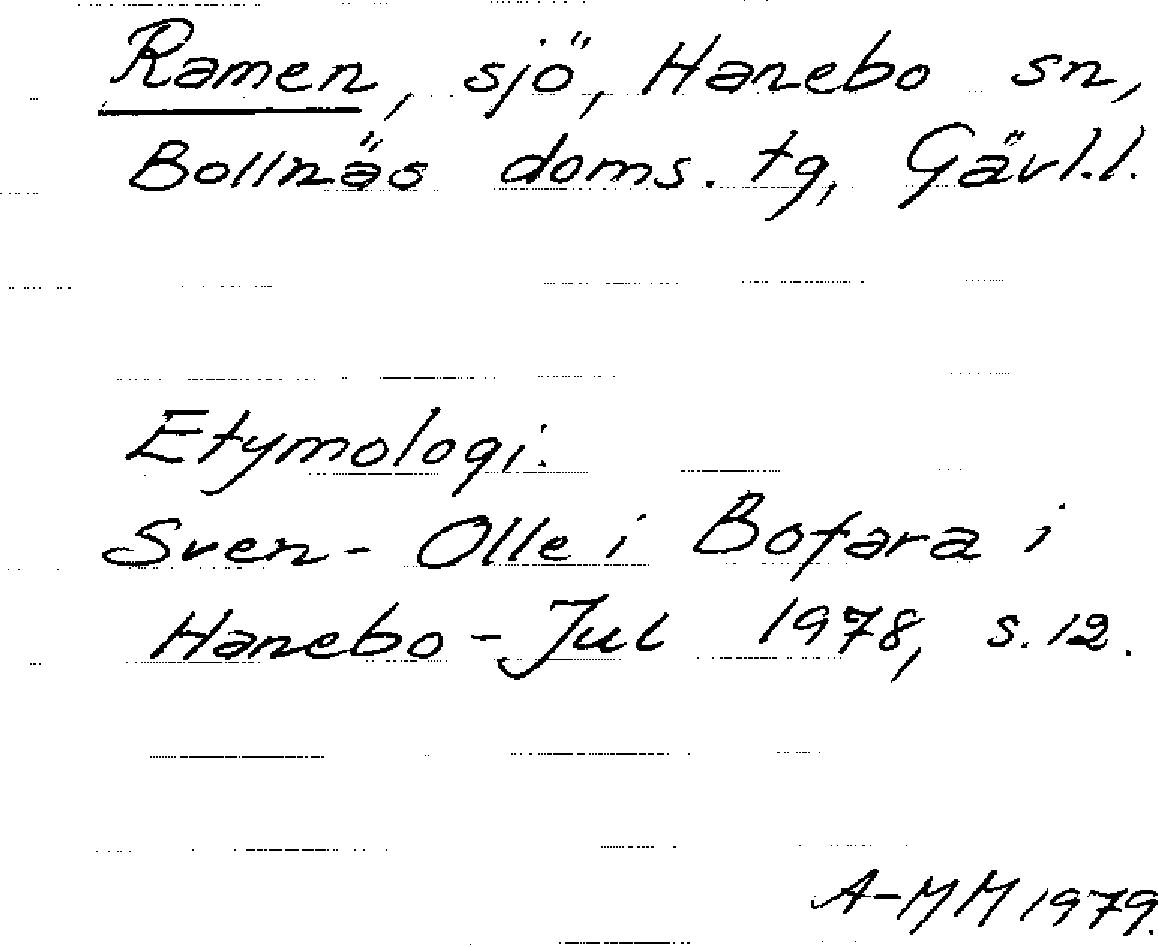 Ramen, sjö, Hanebo sn,
Bollnäs doms. tg, Gävl.l.
Etymologi.
Sven-Olle i Bofara i
Hanebo-Jul 1978, s. 12.
A-MM 1979.